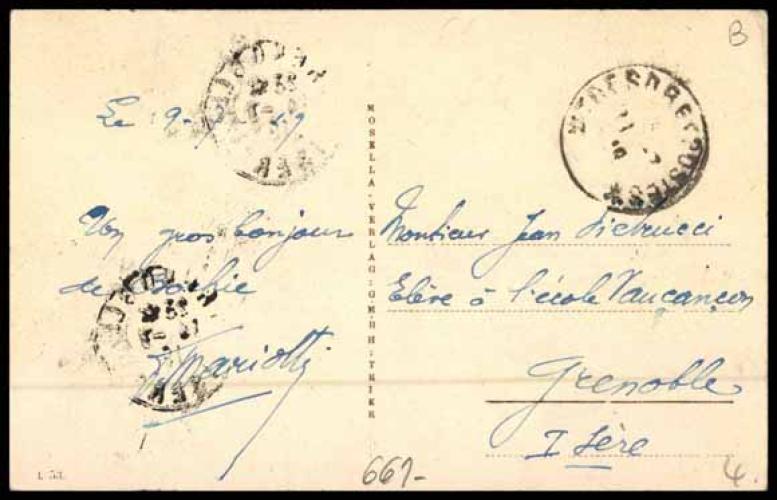 B
Le 9-
Un gros bonjour
de
Mariotti
MOSELLA-VERLAG:G.M.B.H:TRIER
Monsieur Jean Pietrucci
Elève à l'école Vaucançon
Grenoble
Isère
661-
4.